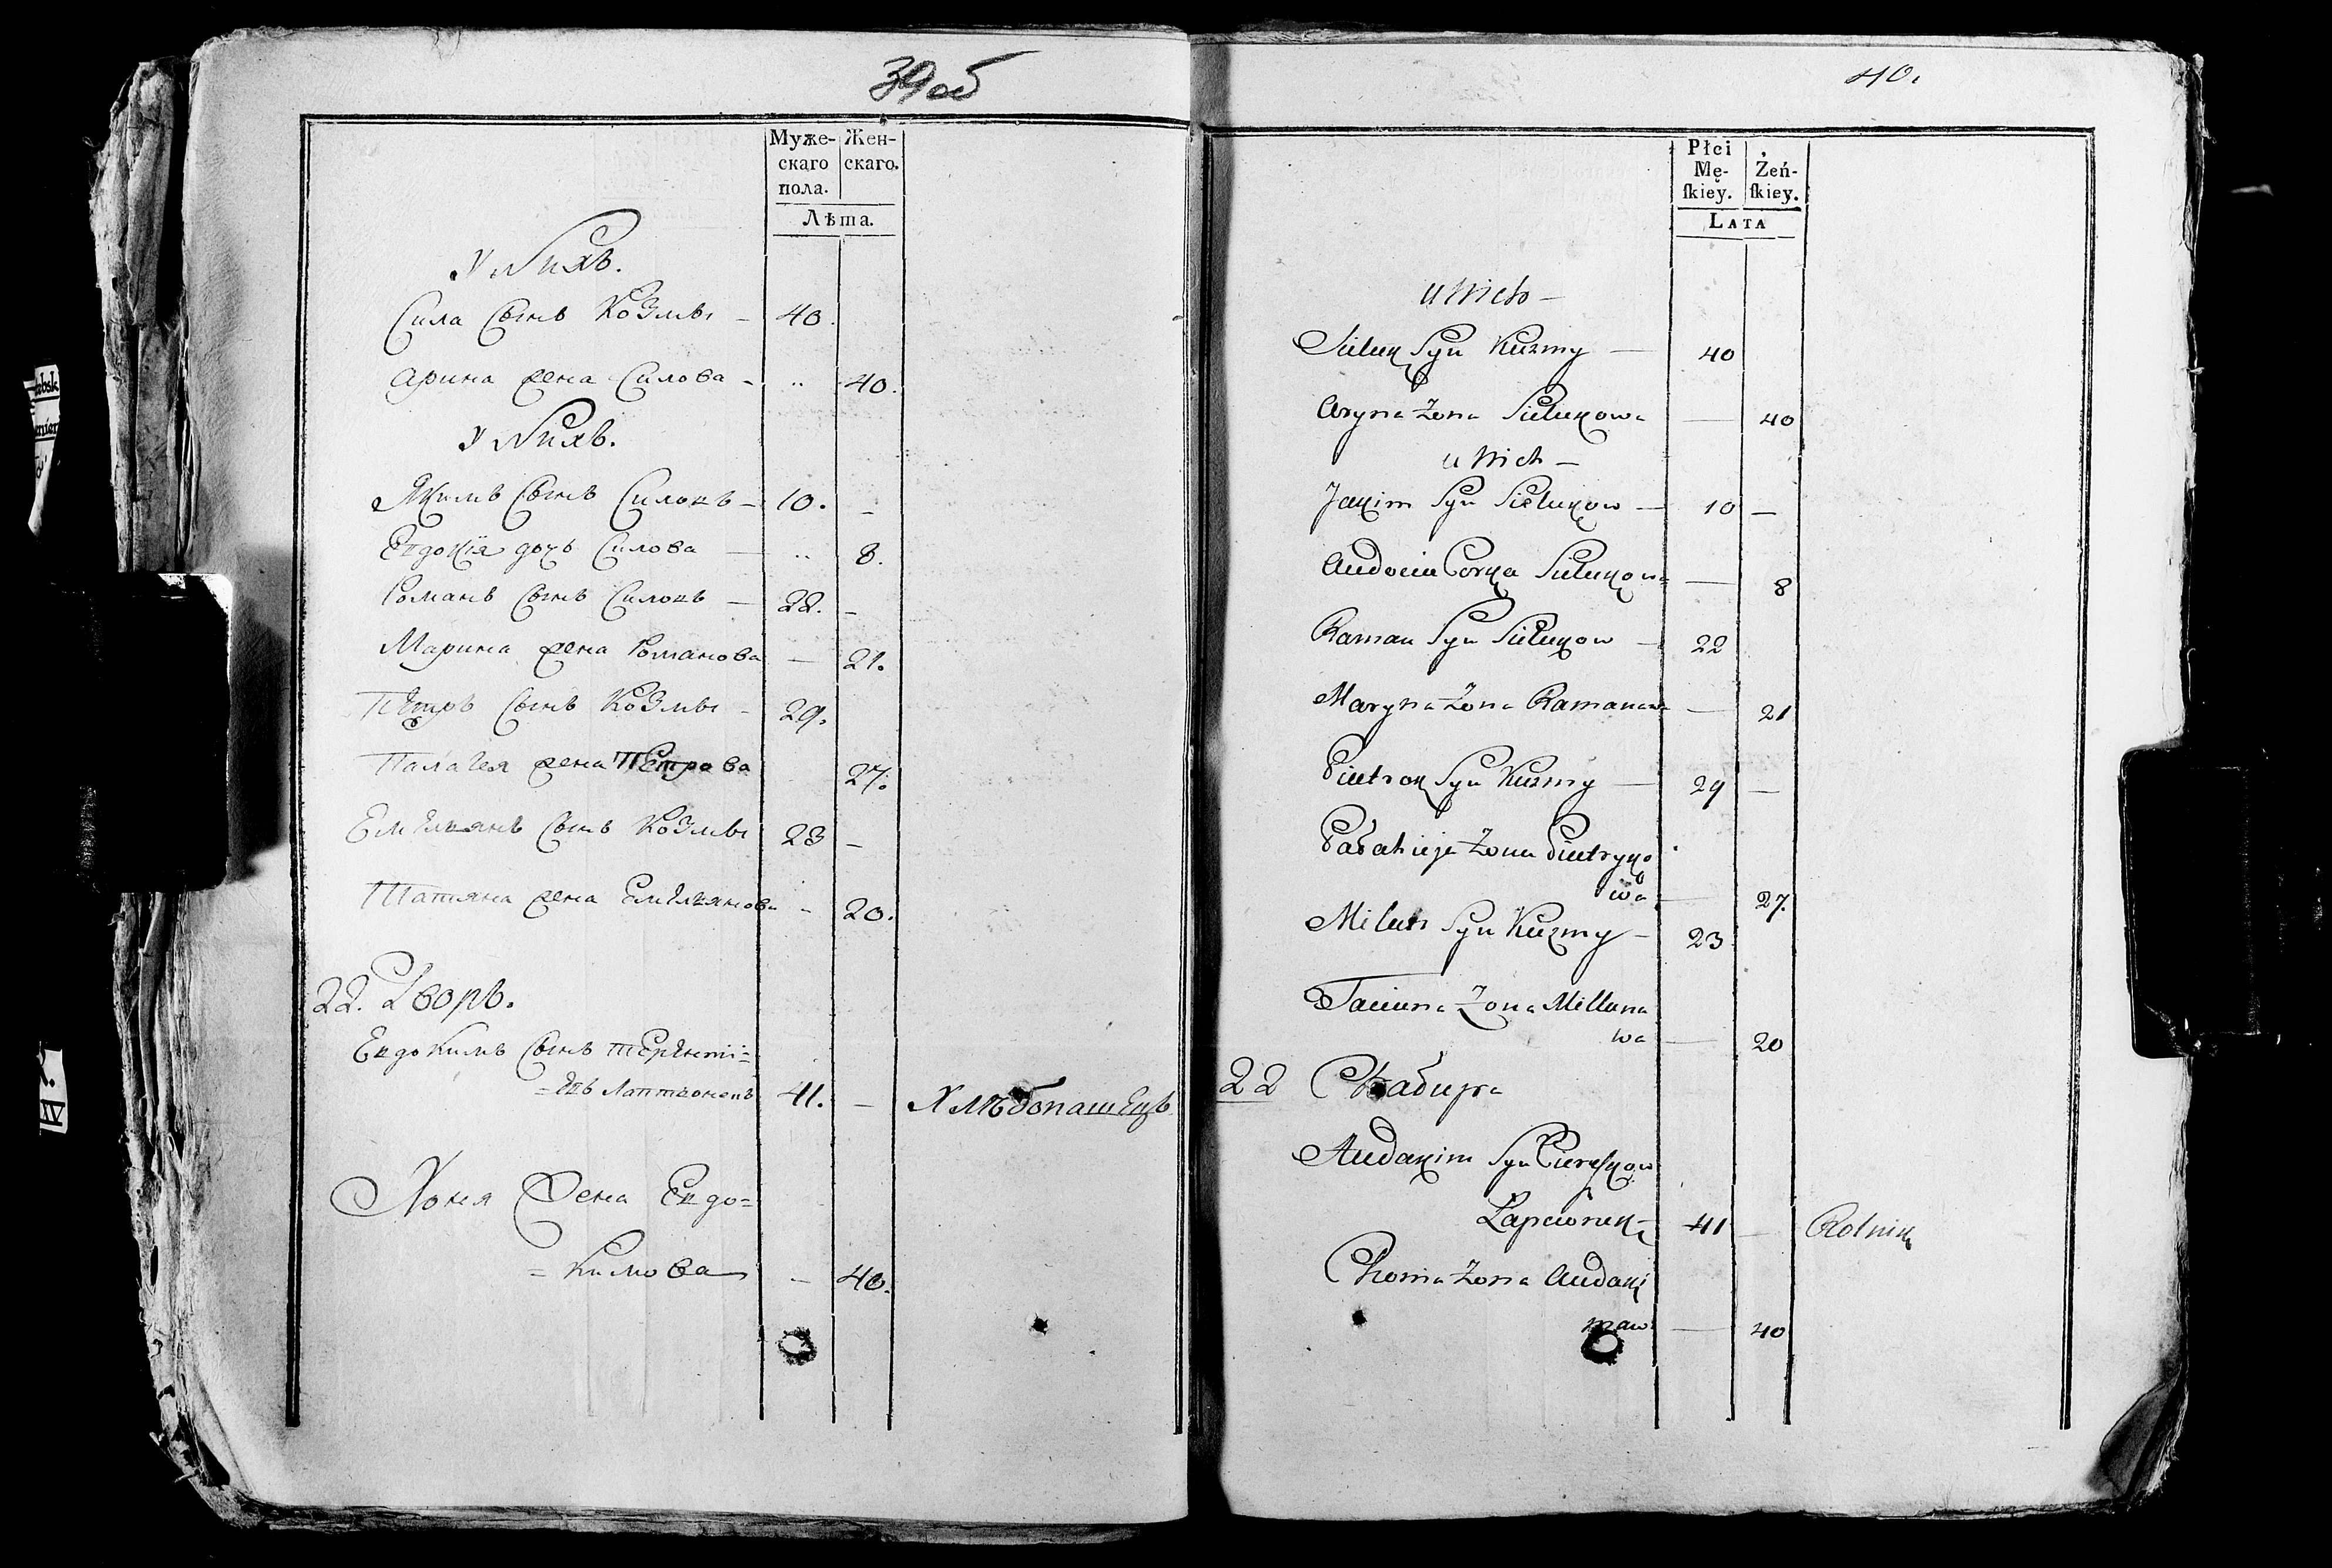 39об
Муже- Жен-
скаго скаго.
пола.
Лѣта.
У Нихъ.
Сила Сынъ Козмы – 40.
Арина жена Силова – " 40.
У Нихъ.
Якимъ Сынъ Силовъ – 10. –
Евдокія дочь Силова — " 8.
Романъ Сынъ Силовъ — 22. –
Марина жена Романова — 21.
Петръ Сынъ Козмы – 29.
Палагея жена Петрова 27.
Емельянъ Сынъ Козмы 23 –
Татяна жена Емельянова – 20.
22. Дворъ.
Евдокимъ Сынъ Теренті=
=евъ Лаптіонокъ 41. – Хлѣбопашецъ
Хоня Жена Евдо=
=кимова – 40.
40.
Płci
Mę- Żeń-
ſkiey. ſkiey.
LATA
u Nich —
Sieluk Syn Kuzmy — 40
Aryna Żona Sielukowa — 40
u Nich —
Jakim Syn Sielukow — 10 —
Audocia Corka Sielukowa — 8
Raman Syn Sielukow — 22
Maryna Żona Ramanowa — 21
Pietrok Syn Kuzmy — 29 —
Pałahieja Żona Pietryko
wa — 27.
Milan Syn Kuzmy — 23
Taciana Żona Millana
wa — 20
22 Chałupa
Audakim SynCiereszkow
Łapcionek — 41 — Rolnik
Chonia Żona Audaki
maw — 40